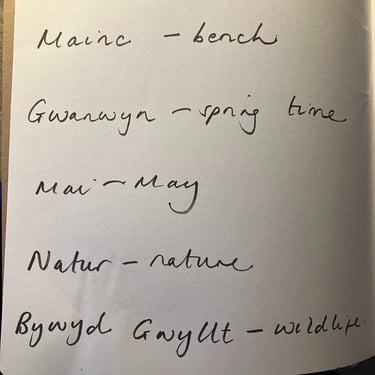 Mainc – bench
Gwanwyn – spring time
Mai – May
Natur – nature
Bywyd Gwyllt – wildlife.